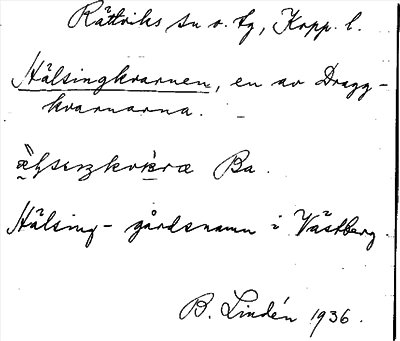 Rättviks sn o. tg, Kopp. l.
Hälsingkvarnen, en av Dragg-
kvarnarna.
Ba.
Hälsing- gårdsnamn i Västberg.
B. Lindén 1936.